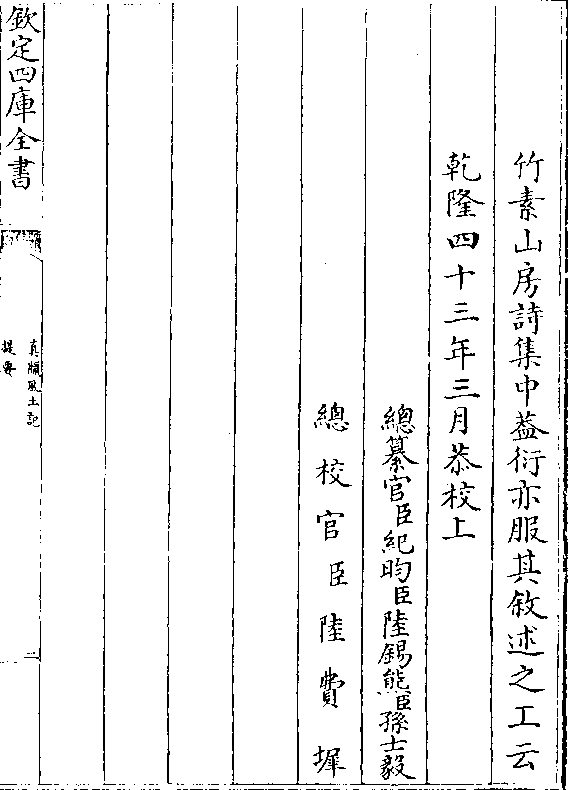 竹素山房詩集中葢衍亦服其敘述之工云
乾隆四十三年三月恭校上
總纂官臣紀昀臣陸錫熊臣孫士毅
總校官臣陸費墀
欽定四庫全書
真臘風土記
提要
二